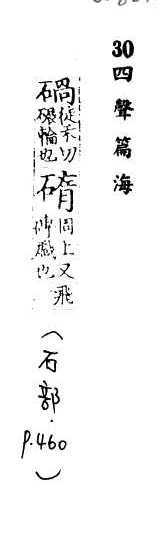 30四聲篇海
碢徒禾切碢輪也𥓔同上又飛磚戲也
(石部.p.460)